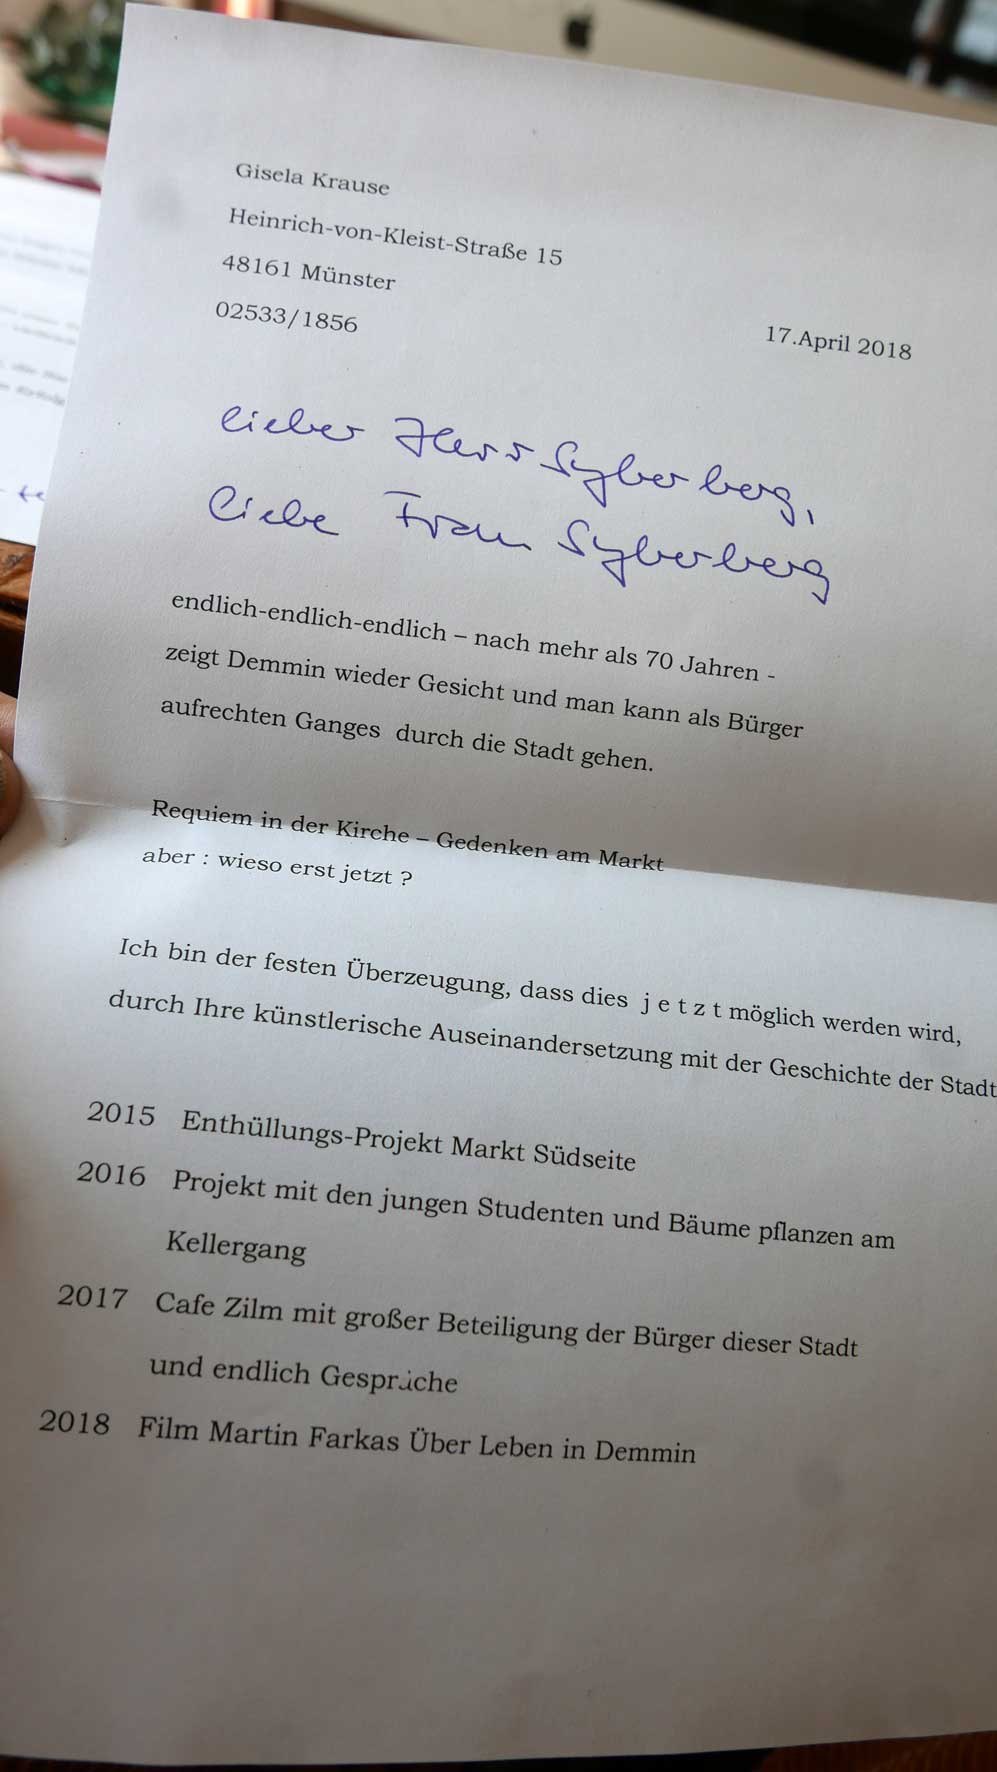 Gisela Krause
Heinrich-von-Kleist-Straße 15
48161 Münster
02533/1856
17.April 2018
lieber Herr Syberberg,
liebe Frau Syberberg
endlich-endlich-endlich – nach mehr als 70 Jahren -
zeigt Demmin wieder Gesicht und man kann als Bürger
aufrechten Ganges durch die Stadt gehen.
Requiem in der Kirche – Gedenken am Markt
aber : wieso erst jetzt ?
Ich bin der festen Überzeugung, dass dies j e t z t möglich werden wird,
durch Ihre künstlerische Auseinandersetzung mit der Geschichte der Stadt
2015 Enthüllungs-Projekt Markt Südseite
2016 Projekt mit den jungen Studenten und Bäume pflanzen am
Kellergang
2017 Cafe Zilm mit großer Beteiligung der Bürger dieser Stadt
und endlich Gespräche
2018 Film Martin Farkas Über Leben in Demmin